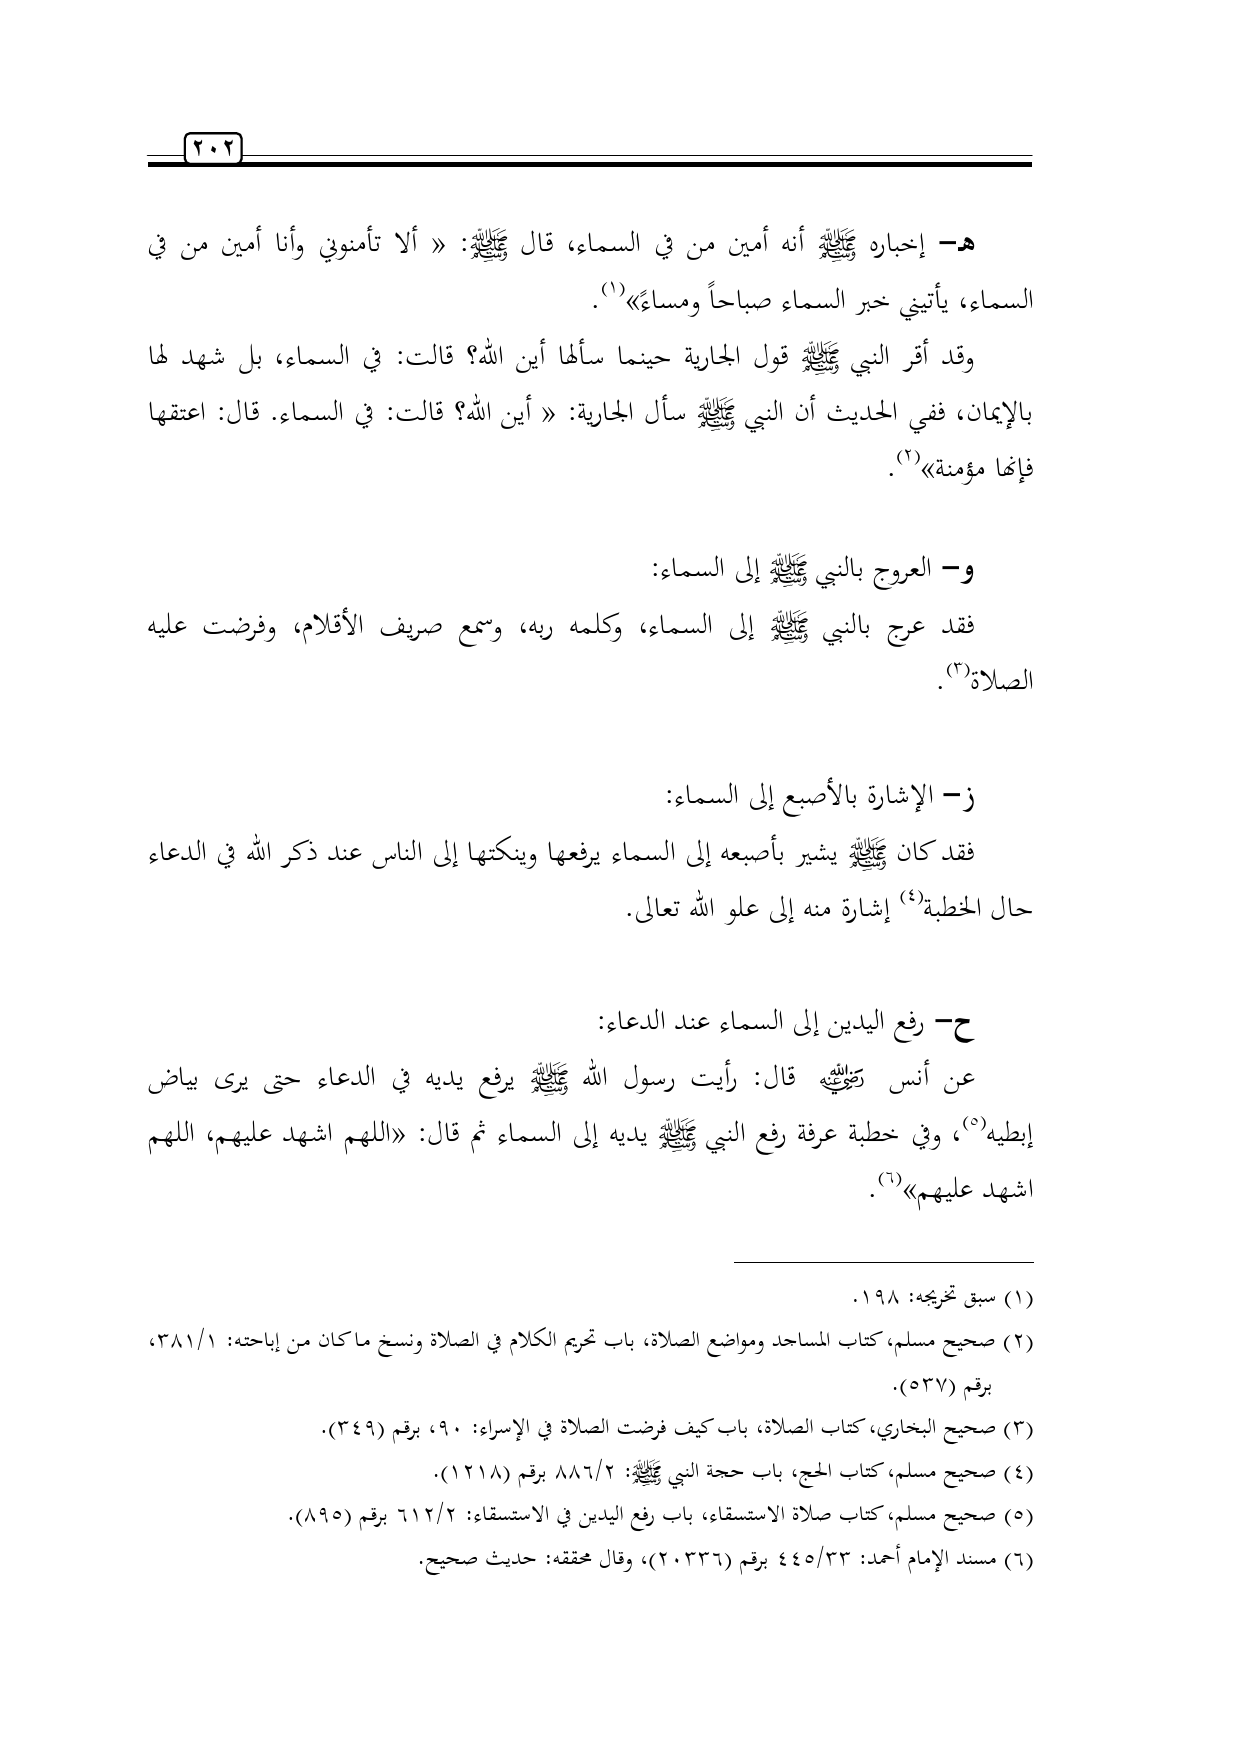 ٢٠٢
هـ– إخباره ﷺ أنه أمين من في السماء، قال ﷺ: « ألا تأمنوني وأنا أمين من في
السماء، يأتيني خبر السماء صباحاً ومساءً»(١).
وقد أقر النبي ﷺ قول الجارية حينما سألها أين الله؟ قالت: في السماء، بل شهد لها
بالإيمان، ففي الحديث أن النبي ﷺ سأل الجارية: « أين الله؟ قالت: في السماء. قال: اعتقها
فإنها مؤمنة»(٢).
و– العروج بالنبي ﷺ إلى السماء:
فقد عرج بالنبي ﷺ إلى السماء، وكلمه ربه، وسمع صريف الأقلام، وفرضت عليه
الصلاة(٣).
ز– الإشارة بالأصبع إلى السماء:
فقد كان ﷺ يشير بأصبعه إلى السماء يرفعها وينكتها إلى الناس عند ذكر الله في الدعاء
حال الخطبة(٤) إشارة منه إلى علو الله تعالى.
ح– رفع اليدين إلى السماء عند الدعاء:
عن أنس رضي الله عنه قال: رأيت رسول الله ﷺ يرفع يديه في الدعاء حتى يرى بياض
إبطيه(٥)، وفي خطبة عرفة رفع النبي ﷺ يديه إلى السماء ثم قال: «اللهم اشهد عليهم، اللهم
اشهد عليهم»(٦).
(١) سبق تخريجه: ١٩٨.
(٢) صحيح مسلم، كتاب المساجد ومواضع الصلاة، باب تحريم الكلام في الصلاة ونسخ ما كان من إباحته: ٣٨١/١،
برقم (٥٣٧).
(٣) صحيح البخاري، كتاب الصلاة، باب كيف فرضت الصلاة في الإسراء: ٩٠، برقم (٣٤٩).
(٤) صحيح مسلم، كتاب الحج، باب حجة النبي ﷺ: ٨٨٦/٢ برقم (١٢١٨).
(٥) صحيح مسلم، كتاب صلاة الاستسقاء، باب رفع اليدين في الاستسقاء: ٦١٢/٢ برقم (٨٩٥).
(٦) مسند الإمام أحمد: ٤٤٥/٣٣ برقم (٢٠٣٣٦)، وقال محققه: حديث صحيح.